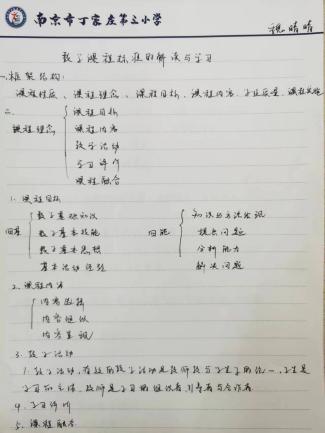 南京市丁家庄第二小学
魏晴晴
数学课程标准的解读与学习
一、框架结构:
课程性质、课程理念、课程目标、课程内容、学业质量、课程实施
二、
课程理念
课程目标
课程内容
教学活动
学习评价
课程融合
1. 课程目标
四基
数学基础知识
数学基本技能
数学基本思想
基本活动经验
四能
发现
提出问题
分析能力
解决问题
2. 课程内容
内容选择
内容组织
内容呈现
3. 教学活动
教学活动,有效的教学活动是教师教与学生学的统一,学生是
学习的主体,教师是学习的组织者、引导者与合作者
4. 学习评价
5. 课程融合